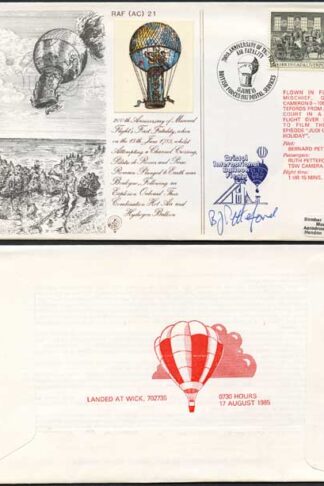 RAF (AC) 21
200th Anniversary of Manned
Flight's First Fatality, when
on the 15th June, 1785, whilst
Attempting a Channel Crossing,
Pilâtre de Rozier and Pierre
Romain Plunged to Earth near
Boulogne, Following an
Explosion Onboard Their
Combination Hot Air and
Hydrogen Balloon
200th ANNIVERSARY OF THE
AIR FATALITY
15 JUNE 85
BRITISH FORCES POSTAL SERVICES
Bristol
International
Balloon
FLOWN IN
MISCHIEF, G
CAMERONS-
TEFORDS FROM
COURT IN A
FLIGHT OVER
TO FILM THE
EPISODE "JUDI
HOLIDAY".
Pilot:
BERNARD PETT
Passengers:
RUTH PETTEFO
TSW CAMERA
Flight time:
1 HR 15 MINS.
LANDED AT WICK, 702735
0730 HOURS
17 AUGUST 1985